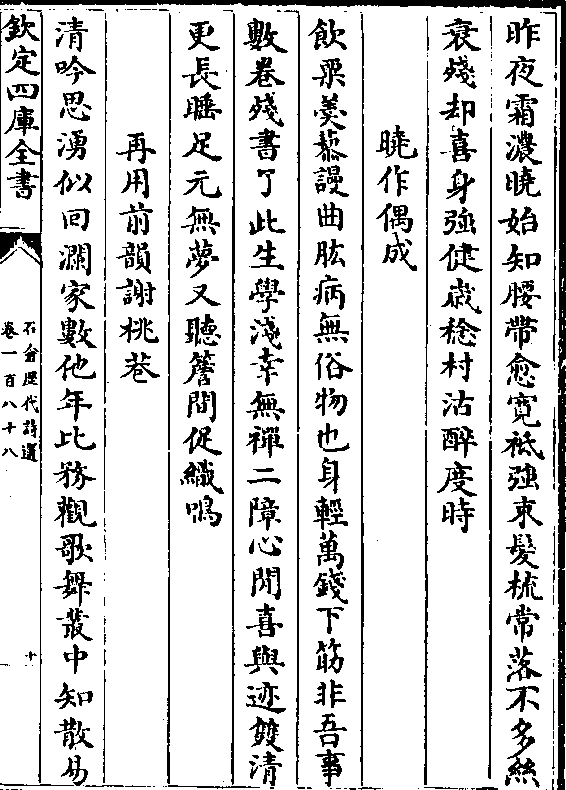 昨夜霜濃曉始知腰帶愈寛袛強束髮梳常落不多絲
衰殘却喜身強健歳稔村沽醉度時
曉作偶成
飲粟羮藜謾曲肱病無俗物也身輕萬錢下筯非吾事
數卷殘書了此生學淺幸無禪二障心閒喜與迹雙清
更長睡足元無夢又聽簷間促織鳴
再用前韻謝桃巷
清吟思湧似回瀾家數他年比務觀歌舞叢中知散易
欽定四庫全書
石倉歴代詩選
卷一百八十八
十